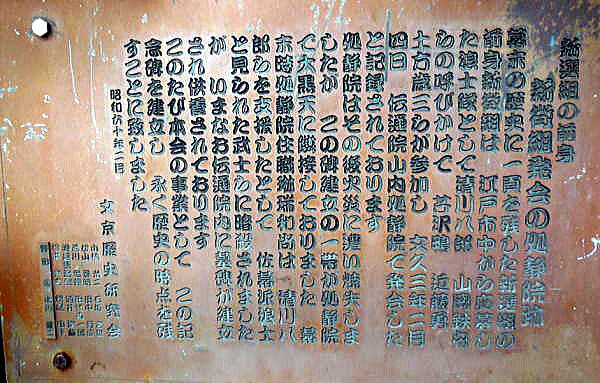 新選組の前身
新徴組発会の処静院跡
幕末の歴史に一頁を残した新選組の
前身新徴組は 江戸市中から応募し
た浪士隊として清川八郎 山岡鉄舟
らの呼びかけで 芹沢鴨 近藤勇
土方歳三らが参加し 文久三年二月
四日 伝通院山内処静院で発会した
と記録されております
処静院はその後火災に遭い焼失しま
したが この碑建立の一帯が処静院
で大黒天に隣接しておりました 幕
末時処静院住職琳瑞和尚は 清川八
郎らを支援したとして 佐幕派浪士
と見られた武士らに暗殺されました
が いまなお伝通院内に墓碑が建立
され供養されております
このたび本会の事業として この記
念碑を建立し 永く歴史の時点を残
すことに致しました
昭和六十年二月
文京歴史研究会